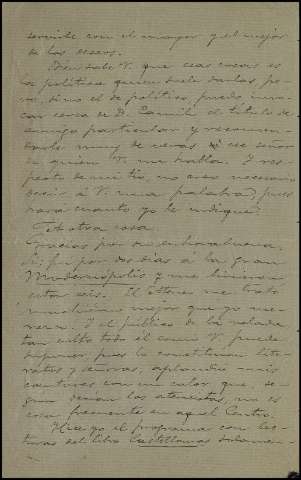 servirle con el mayor y el mejor
de los deseos.
Bien sabe V. que esas cosas es
la política quien suele darlas, pe-
ro, sino el de político, puedo invo-
car cerca de D. Camilo el título de
amigo particular y recomen-
darle muy de veras á ese señor
de quien V. me habla. Y res-
pecto de mi tío, no creo necesario
decir á V. una palabra, pues
hará cuanto yo le indique.
A otra cosa.
Gracias por su enhorabuena.
Sí; fuí por dos días á la gran
Madrinópolis y me hicieron
estar seis. El Ateneo me trató
muchísimo mejor que yo me-
rezco. Y el público de la velada
tan culto todo él como V. puede
suponer, pues lo constituían lite-
ratos y señoras, aplaudió mis
lecturas con un calor que, se-
gún decían los ateneistas, no es
cosa frecuente en aquel Centro.
Hice yo el programa con lec-
turas del libro Castellanas solamen-